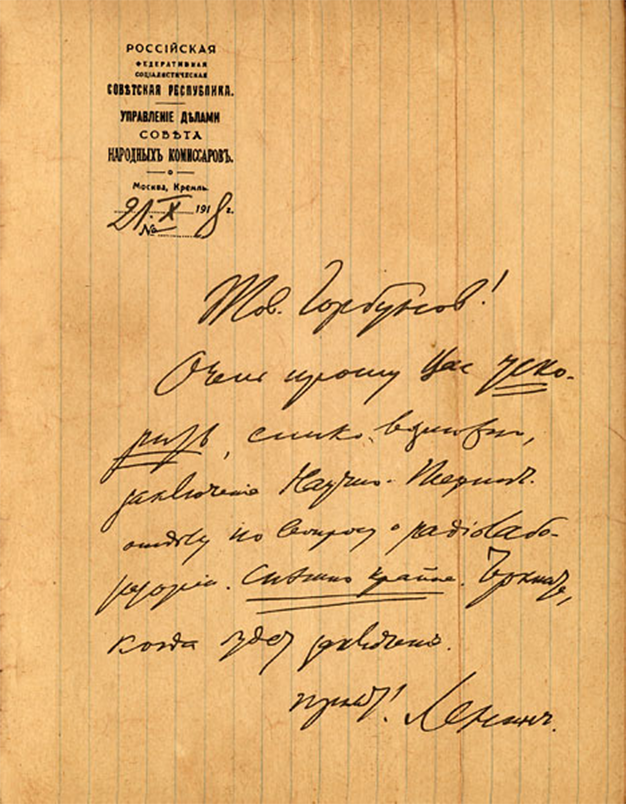 РОССІЙСКАЯ
ФЕДЕРАТИВНАЯ
СОЦІАЛИСТИЧЕСКАЯ
СОВѢТСКАЯ РЕСПУБЛИКА.
УПРАВЛЕНІЕ ДѢЛАМИ
СОВѢТА
НАРОДНЫХЪ КОМИССАРОВЪ.
Москва, Кремль.
21. X 1918 г.
№
Тов. Горбунов!
Очень прошу Вас уско-
рить, елико возможно,
заключение Научно-Технич.
отдѣла по вопросу о радіолабо-
раторіи. Спѣшно крайне. Черкните,
когда будет заключение.
Привет! Ленин.